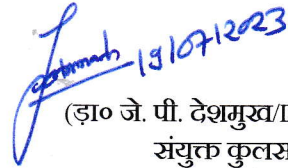 19/07/2023
(ड़ा० जे. पी. देशमुख/D
संयुक्त कुलस